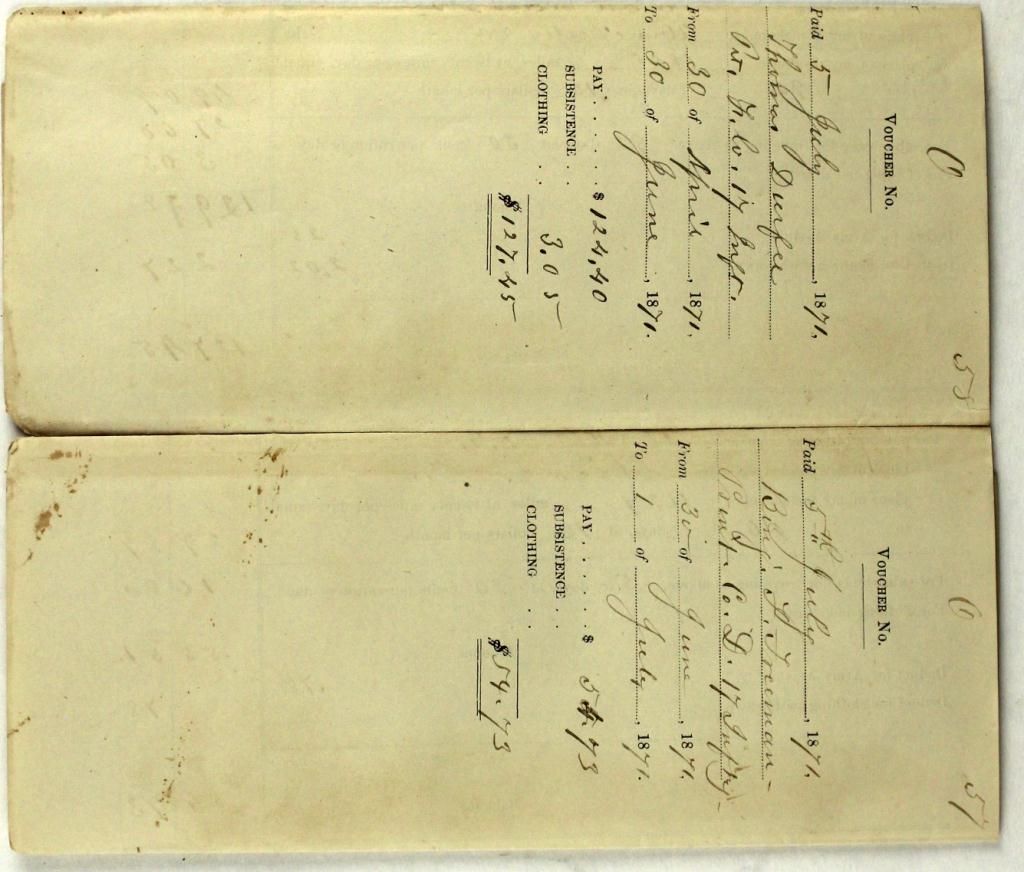 58
VOUCHER No.
Paid 5 July, 1871,
Thomas Durfee
Pvt. F. Co. 17 Inft.
From 30 of April, 1871,
To 30 of June, 1871.
PAY . . . . . $ 124.40
SUBSISTENCE . .
CLOTHING . . 3.05
$127.45
57
VOUCHER No.
Paid 5th July, 1871,
Freeman
Co. D. 17 Infty
From 30 of June, 1871,
To 1 of July, 1871.
PAY . . . . . $ 54.73
SUBSISTENCE . .
CLOTHING . .
$54.73